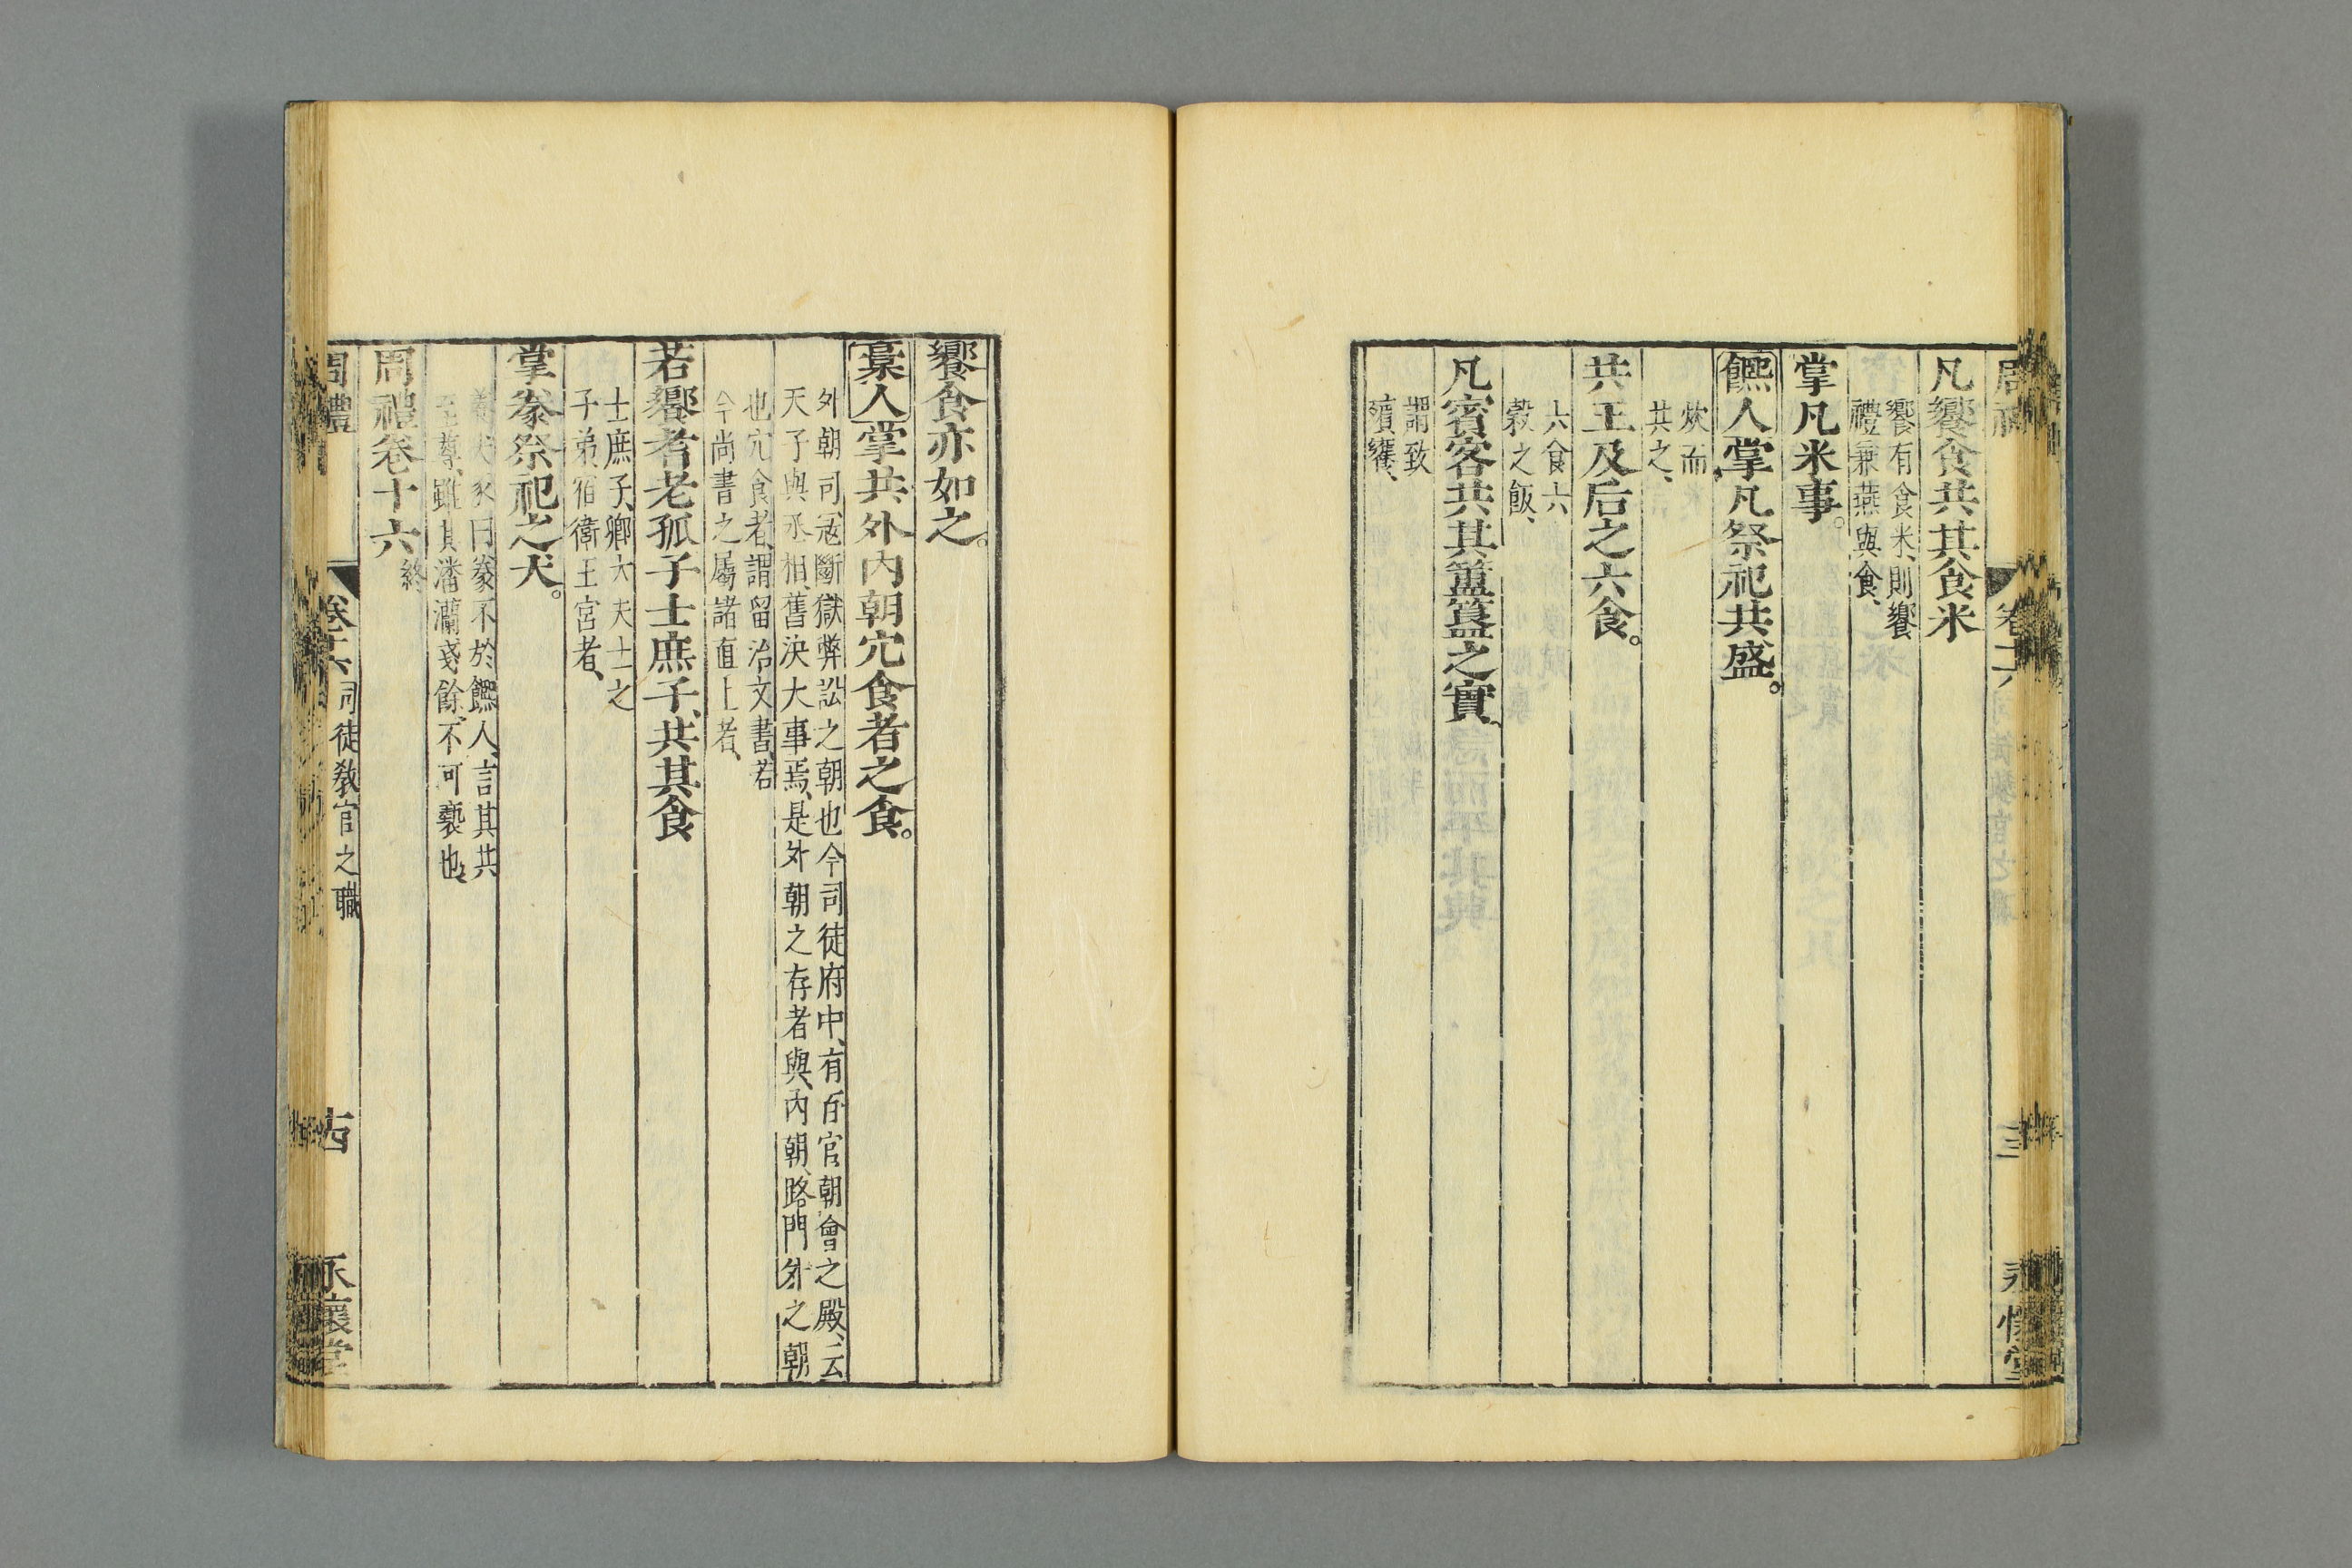 凡饗食共其食米
饗有食米、則饗
禮兼燕與食、
掌凡米事。
饎人掌凡祭祀共盛。
炊而
共之、
共王及后之六食。
六食六
穀之飯、
凡賓客共其簠簋之實、
謂致
飧饔、
饗食亦如之。
稾人掌共外內朝冗食者之食。
外朝司寇斷獄弊訟之朝也今司徒府中、有百官朝會之殿、云
天子與丞相、舊決大事焉、是外朝之存者與、內朝、路門外之朝
也冗食者、謂留治文書、若
今尚書之屬諸直上者、
若饗者老孤子士庶子、共其食
士庶子、卿大夫士之
子弟、宿衛王宮者、
掌豢祭祀之犬。
養犬豕曰豢不於饎人、言其共
至尊、雖其潘灡戔餘、不可褻也、
周禮卷十六終
周禮
卷十六
司徒教官之職
古
永懷堂